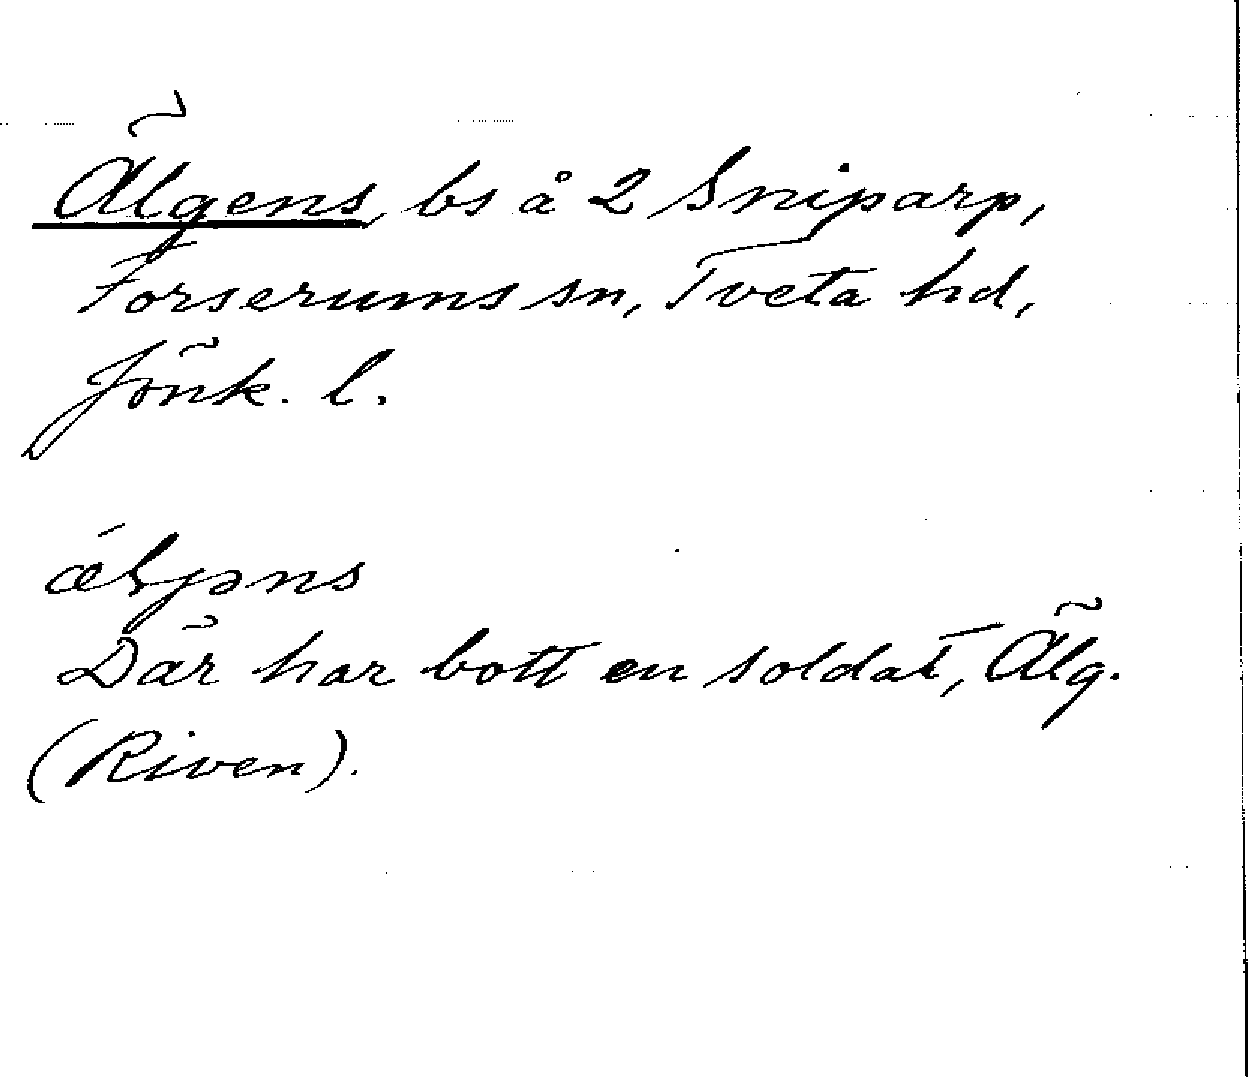 Älgens, bs å 2 Sniparp,
Forserums sn, Tveta hd,
Jönk. l.
Där har bott en soldat, Älg.
(Riven).